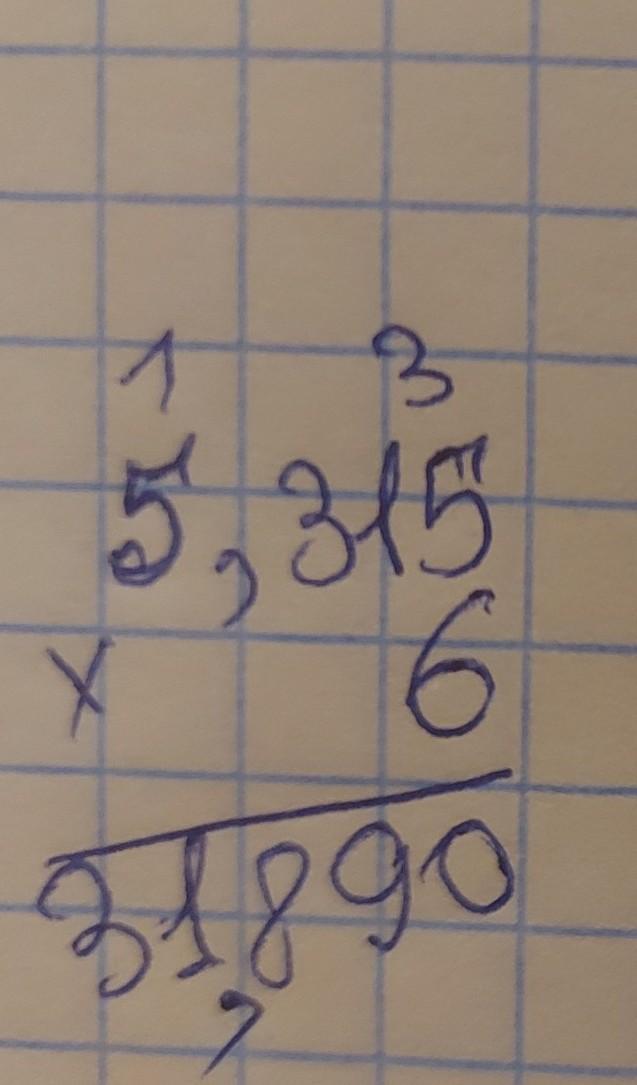 1 3
5,315
x 6
31,890